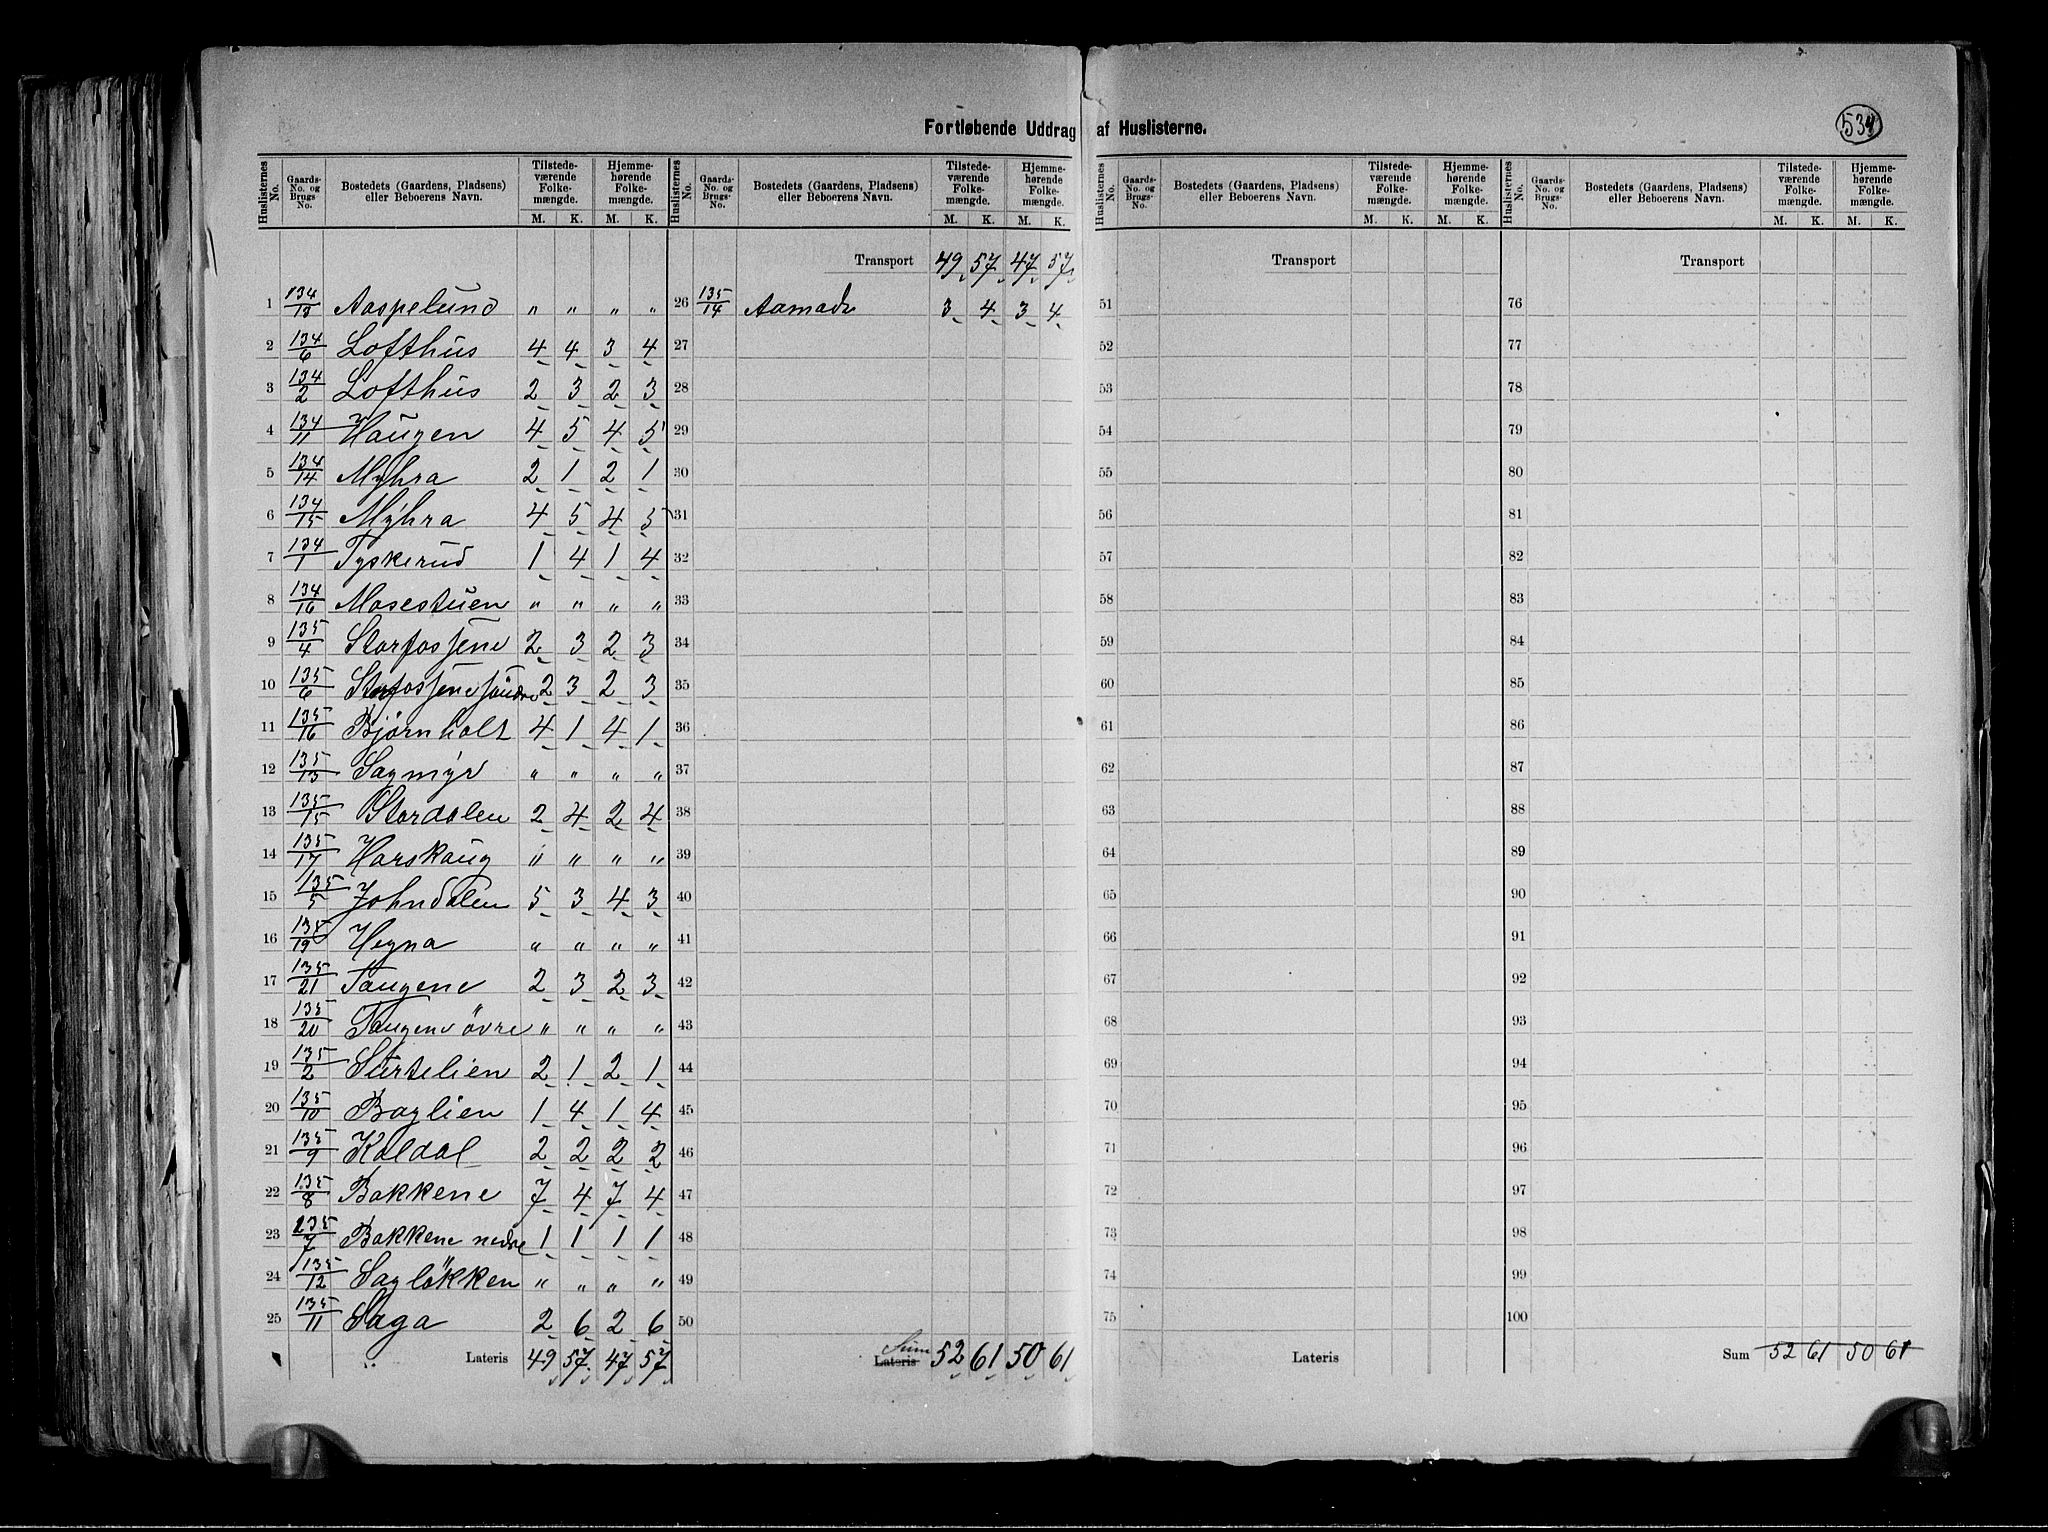 Fortløbende Uddrag af Huslisterne.
534
Huslisternes No. | Gaards-No. og Brugs-No. | Bostedets (Gaardens, Pladsens) eller Beboerens Navn. | Tilstedeværende Folkemængde. M. K. | Hjemmehørende Folkemængde. M. K.
1 134/13 Aaspelund " " " "
2 134/6 Lofthus 4 4 3 4
3 134/2 Lofthus 2 3 2 3
4 134/11 Haugen 4 5 4 5
5 134/14 Myhra 2 1 2 1
6 134/15 Myhra 4 5 4 5
7 134/1 Tyskerud 1 4 1 4
8 134/16 Mosestuen " " " "
9 135/4 Storfossene 2 3 2 3
10 135/6 Storfossene søndre 2 3 2 3
11 135/16 Bjørnholt 4 1 4 1
12 135/13 Sagmyr " " " "
13 135/15 Stordalen 2 4 2 4
14 135/17 Horskaug " " " "
15 135/5 Johndalen 5 3 4 3
16 135/19 Hegna " " " "
17 135/21 Taugene 2 3 2 3
18 135/20 Taugene övre " " " "
19 135/2 Surtelien 2 1 2 1
20 135/10 Baglien 1 4 1 4
21 135/9 Koldal 2 2 2 2
22 135/8 Bakkene 7 4 7 4
23 135/7 Bakkene nedre 1 1 1 1
24 135/12 Saglökken " " " "
25 135/11 Saga 2 6 2 6
Lateris 49 57 47 57
Huslisternes No. | Gaards-No. og Brugs-No. | Bostedets (Gaardens, Pladsens) eller Beboerens Navn. | Tilstedeværende Folkemængde. M. K. | Hjemmehørende Folkemængde. M. K.
Transport 49 57 47 57
26 135/14 Aamodt 3 4 3 4
27
28
29
30
31
32
33
34
35
36
37
38
39
40
41
42
43
44
45
46
47
48
49
50
Sum
Lateris 52 61 50 61
Huslisternes No. | Gaards-No. og Brugs-No. | Bostedets (Gaardens, Pladsens) eller Beboerens Navn. | Tilstedeværende Folkemængde. M. K. | Hjemmehørende Folkemængde. M. K.
Transport
51
52
53
54
55
56
57
58
59
60
61
62
63
64
65
66
67
68
69
70
71
72
73
74
75
Lateris
Huslisternes No. | Gaards-No. og Brugs-No. | Bostedets (Gaardens, Pladsens) eller Beboerens Navn. | Tilstedeværende Folkemængde. M. K. | Hjemmehørende Folkemængde. M. K.
Transport
76
77
78
79
80
81
82
83
84
85
86
87
88
89
90
91
92
93
94
95
96
97
98
99
100
Sum 52 61 50 61